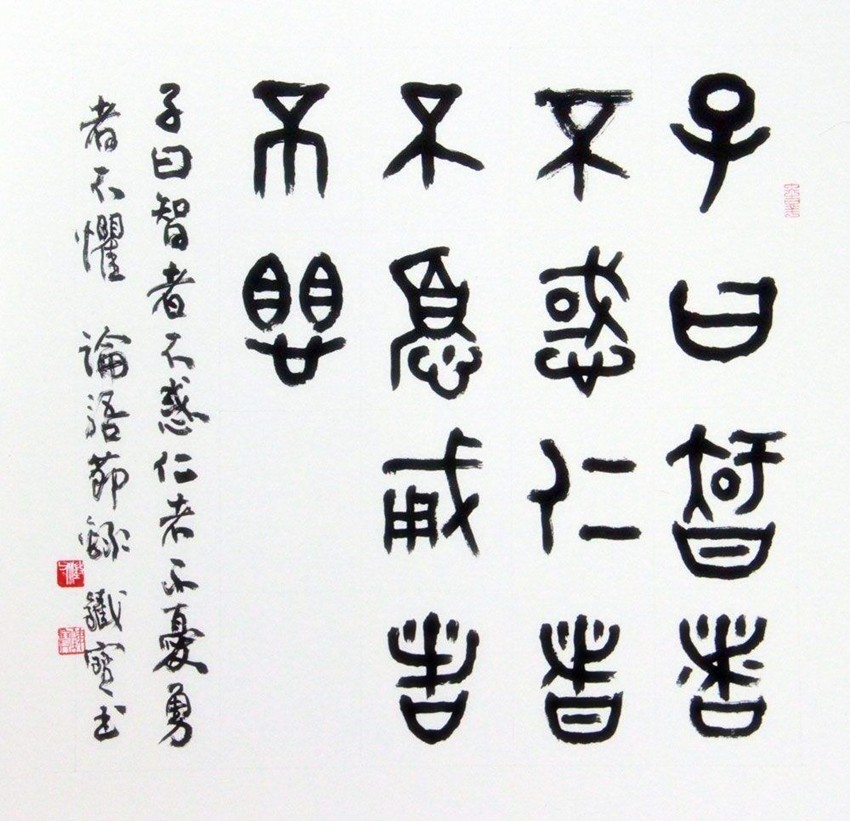 子曰智者
不惑仁者
不憂勇者
不懼
子曰智者不惑仁者不憂勇
者不懼 論語節錄 鐵寶書